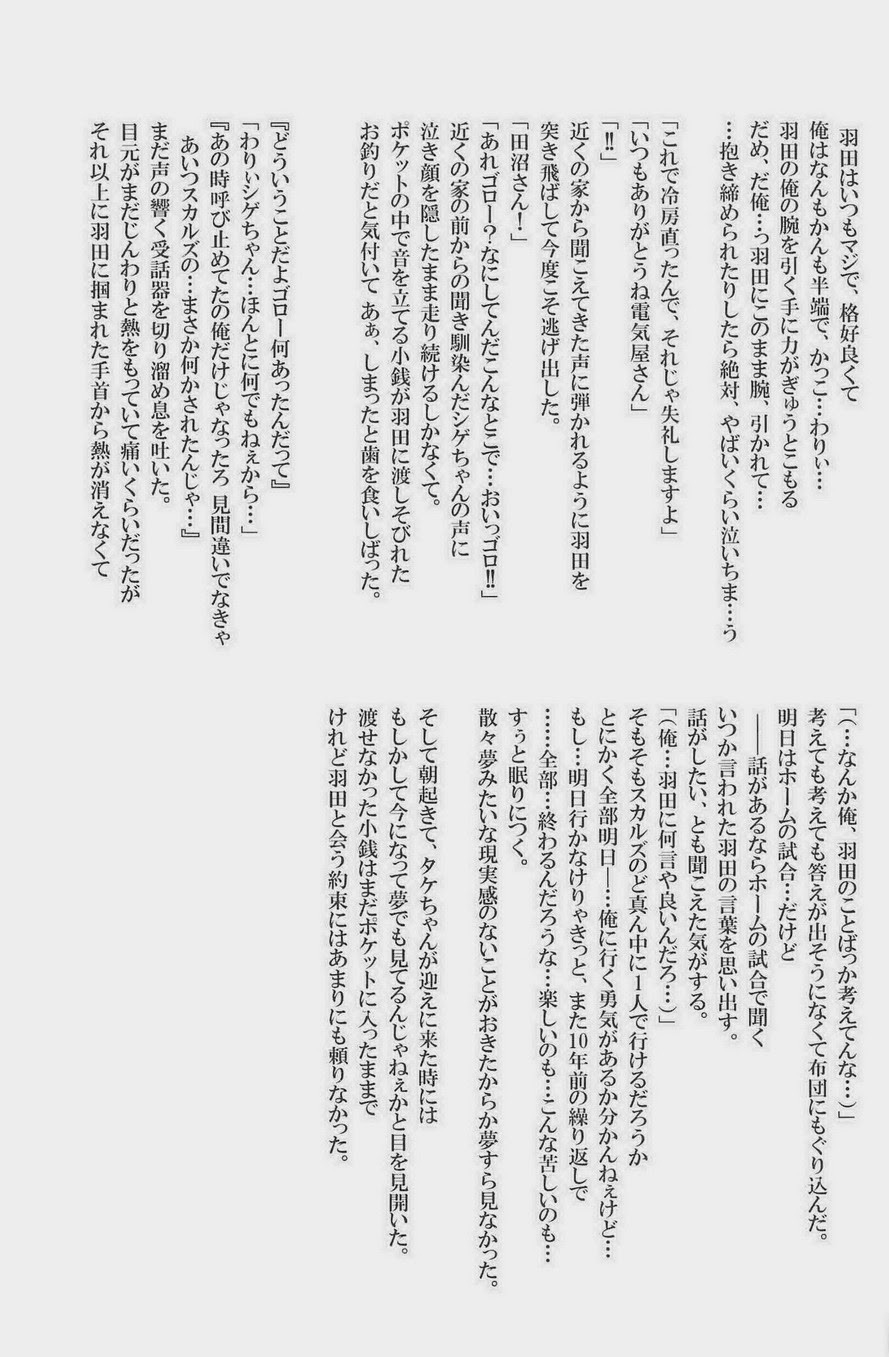 羽田はいつもマジで、格好良くて
俺はなんもかんも半端で、かっこ…わりぃ…
羽田の俺の腕を引く手に力がぎゅうとこもる
だめ、だ俺…っ羽田にこのまま腕、引かれて…
…抱き締められたりしたら絶対、やばいくらい泣いちま…う
「これで冷房直ったんで、それじゃ失礼しますよ」
「いつもありがとうね電気屋さん」
「!!」
近くの家から聞こえてきた声に弾かれるように羽田を
突き飛ばして今度こそ逃げ出した。
「田沼さん！」
「あれゴロー？なにしてんだこんなとこで…おいっゴロ!!」
近くの家の前からの聞き馴染んだシゲちゃんの声に
泣き顔を隠したまま走り続けるしかなくて。
ポケットの中で音を立てる小銭が羽田に渡しそびれた
お釣りだと気付いて あぁ、しまったと歯を食いしばった。
『どういうことだよゴロー何あったんだって』
「わりぃシゲちゃん…ほんとに何でもねぇから…」
『あの時呼び止めてたの俺だけじゃなったろ 見間違いでなきゃ
あいつスカルズの…まさか何かされたんじゃ…』
まだ声の響く受話器を切り溜め息を吐いた。
目元がまだじんわりと熱をもっていて痛いくらいだったが
それ以上に羽田に掴まれた手首から熱が消えなくて
「（…なんか俺、羽田のことばっか考えてんな…）」
考えても考えても答えが出そうになくて布団にもぐり込んだ。
明日はホームの試合…だけど
――話があるならホームの試合で聞く
いつか言われた羽田の言葉を思い出す。
話がしたい、とも聞こえた気がする。
「（俺…羽田に何言や良いんだろ…）」
そもそもスカルズのど真ん中に１人で行けるだろうか
とにかく全部明日―…俺に行く勇気があるか分かんねぇけど…
もし…明日行かなけりゃきっと、また10年前の繰り返しで
……全部…終わるんだろうな…楽しいのも…こんな苦しいのも…
すぅと眠りにつく。
散々夢みたいな現実感のないことがおきたからか夢すら見なかった。
そして朝起きて、タケちゃんが迎えに来た時には
もしかして今になって夢でも見てるんじゃねぇかと目を見開いた。
渡せなかった小銭はまだポケットに入ったままで
けれど羽田と会う約束にはあまりにも頼りなかった。